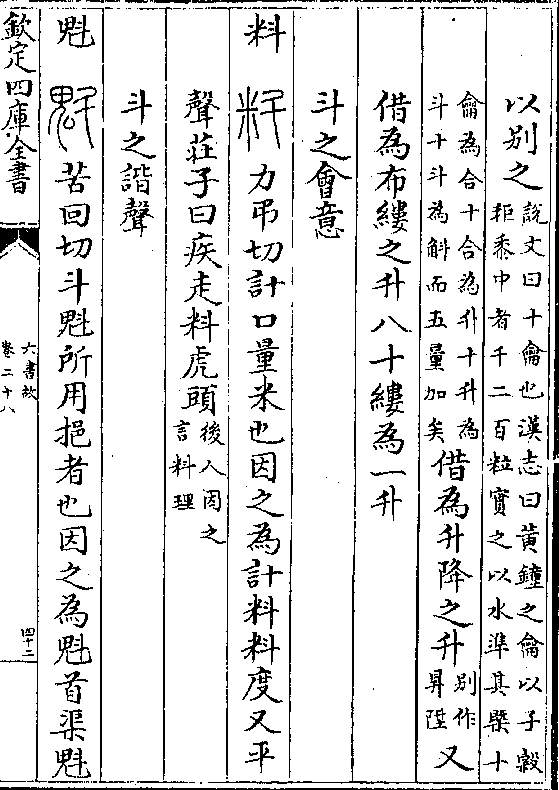 以别之說文曰十龠也漢志曰黄鐘之龠以子榖
秬黍中者千二百粒實之以水準其槩十
龠為合十合為升十升為
斗十斗為斛而五量加矣借為升降之升别作
昇陞又
借為布縷之升八十縷為一升
斗之會意
料 力弔切計口量米也因之為計料料度又平
聲莊子曰疾走料虎頭後人因之
言料理
斗之諧聲
魁 苦回切斗魁所用挹者也因之為魁首渠魁
欽定四庫全書
六書故
卷二十八
四十二